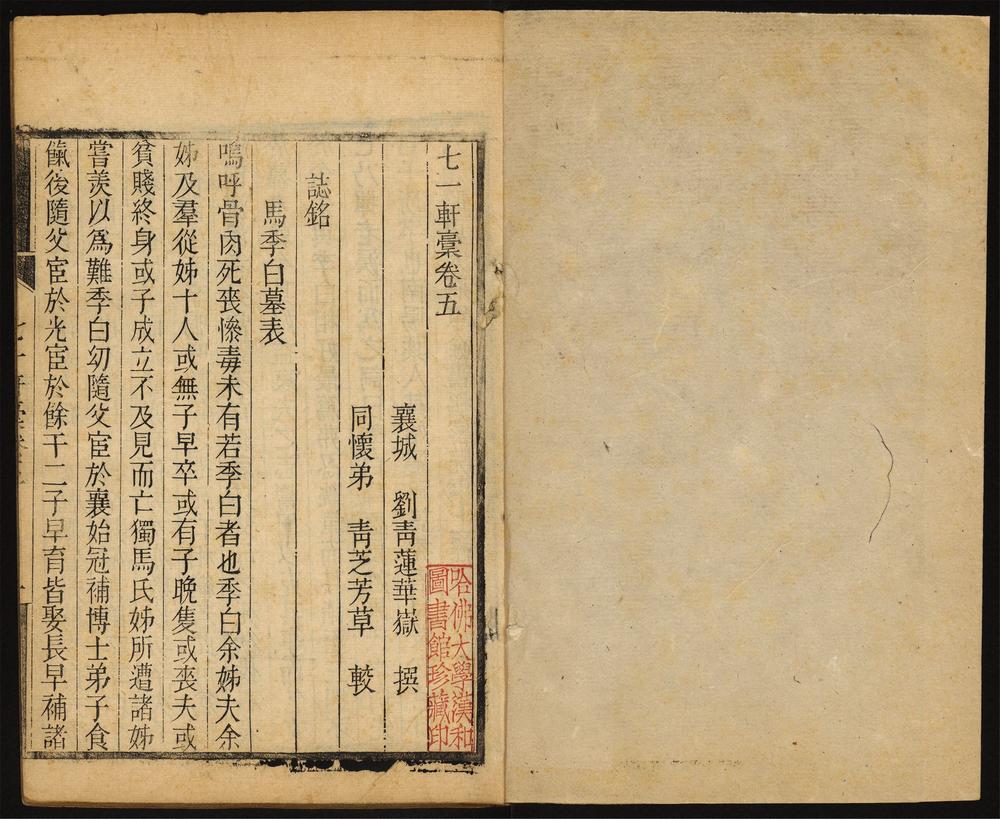 七一軒藁卷五
襄城　劉青蓮華嶽　撰
同懷弟　青芝芳草　較
誌銘
馬季白墓表
嗚呼骨肉死喪慘毒未有若季白者也季白余姊夫余
姊及羣從姊十人或無子早卒或有子晚隻或喪夫或
貧賤終身或子成立不及見而亡獨馬氏姊所遭諸姊
嘗羨以爲難季白幼隨父宦於襄始冠補博士弟子食
餼後隨父宦於光宦於餘干二子早育皆娶長早補諸
哈佛大學漢和
圖書館珍藏印